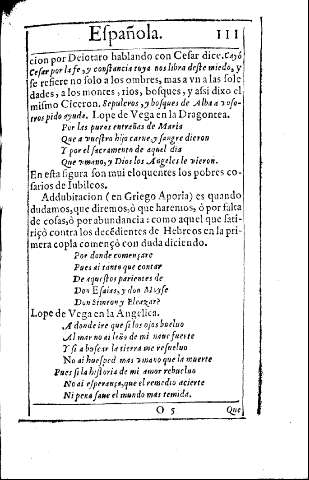 Española. 111
cion por Deiotaro hablando con Cesar dize. Cayó
Cesar por la fe, y constancia tuya nos libra deste miedo, y
se refiere no solo a los ombres, mas a vn a las sole
dades, a los montes, rios, bosques, y assi dixo el
mismo Ciceron. Sepulcros, y bosques de Alba a voso-
tros pido ayuda. Lope de Vega en la Dragontea.
Por las puras entrañas de Maria
Que a vuestro hijo carne, y sangre dieron
Y por el sacramento de aquel dia
Que vmano, y Dios los Angeles le vieron.
En esta figura son muy eloquentes los pobres co-
sarios de Iubileos.
Addubitacion (en Griego Aporia) es quando
dudamos, que diremos, ò que haremos, ó por falta
de cosas, ò por abundancia: como aquel que sati-
riçó contra los decēdientes de Hebreos en la pri-
mera copla començò con duda diciendo.
Por donde començare
Pues ai tanto que contar
De aquestos parientes de
Don Esaias, y don Moyse
Don Simeon y Eleazarè
Lope de Vega en la Angelica.
A donde ire que si los ojos bueluo
Al mar no ai leño de mi naue fuerte
Y si a boscar la tierra me resueluo
No ai huesped mas vmano que la muerte
Pues si la historia de mi amor rebueluo
No ai esperança, que el remedio acierte
Ni pena saue el mundo mas temida.
O 5 Que